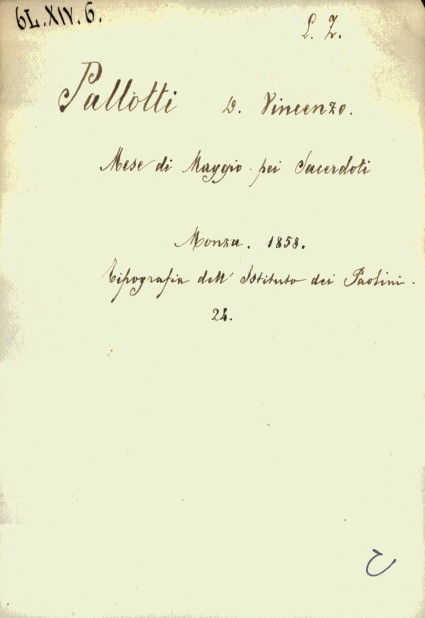 6L.XIV.6.
L. Z.
Pallotti D. Vincenzo.
Mese di Maggio pei Sacerdoti
Monza. 1858.
Tipografia dell' Istituto dei Paolini.
24.